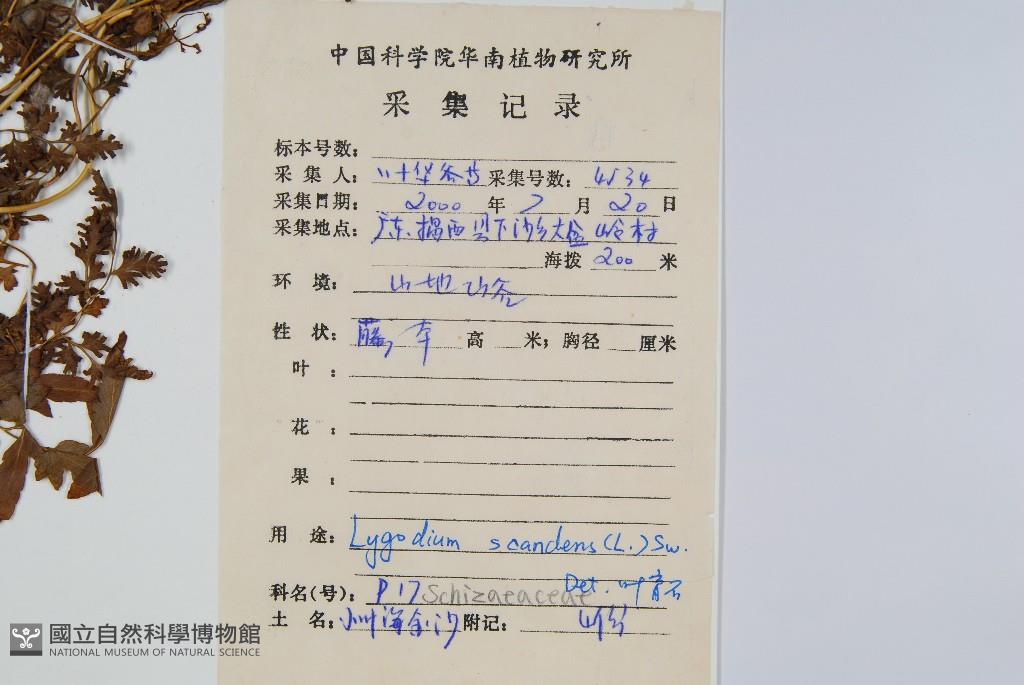 中国科学院华南植物研究所
采集记录
标本号数:
采集人: 叶华谷等 采集号数: 4534
采集日期: 2000 年 7 月 20 日
采集地点: 广东揭西县下沙乡大 岭村
海拨 200 米
环境: 山地山谷
性状: 藤本 高 米; 胸径 厘米
叶:
花:
果:
用途: Lygodium scandens (L.) Sw.
Det. 叶育石
科名(号): P.17 Schizaeaceae
土名: 小叶海金沙 附记:
國立自然科學博物館
NATIONAL MUSEUM OF NATURAL SCIENCE